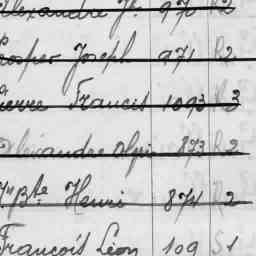 Alexandre Jh. 970 R2
Prosper Joseph 971 R2
Pierre Francis 1093 3
Alexandre Alpi 873 R2
J. Bte Henri 874 2
François Léon 109 S1